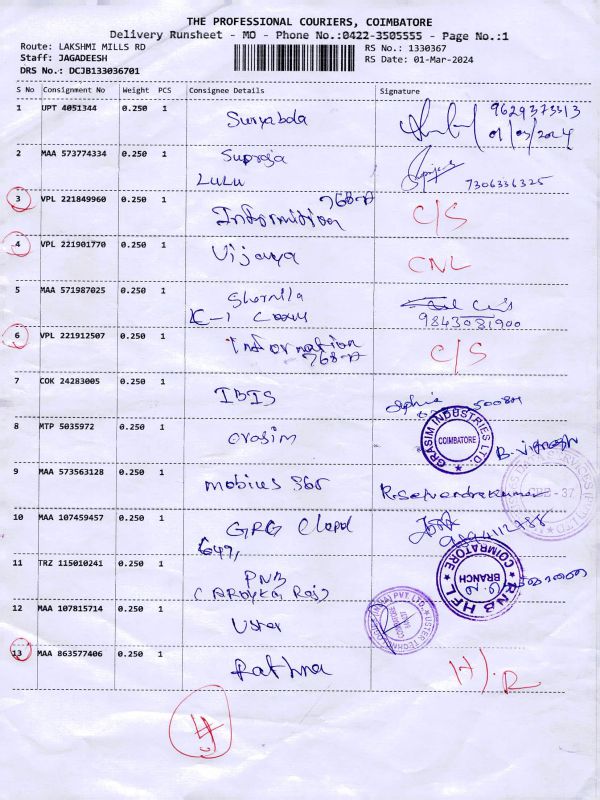 THE PROFESSIONAL COURIERS, COIMBATORE
Delivery Runsheet - MO - Phone No.:0422-3505555 - Page No.:1
Route: LAKSHMI MILLS RD
RS No.: 1330367
Staff: JAGADEESH
RS Date: 01-Mar-2024
DRS No.: DCJB133036701
S No Consignment No Weight PCS Consignee Details Signature
1 UPT 4051344 0.250 1
9629373313
2 MAA 573774334 0.250 1 Supraja
LULU 7306336325
768-A
3 VPL 221849960 0.250 1 Information C/S
4 VPL 221901770 0.250 1 Vijaya CNL
5 MAA 571987025 0.250 1 Sharmila
9843081900
6 VPL 221912507 0.250 1 Information C/S
768-A
7 COK 24283005 0.250 1 IBIS
8 MTP 5035972 0.250 1 Grasim
GRASIM INDUSTRIES LTD.
COIMBATORE
B. Vignesh
9 MAA 573563128 0.250 1 Mobius 365
10 MAA 107459457 0.250 1 GRG
11 TRZ 115010241 0.250 1 PNB
COIMBATORE
BRANCH
PNB HFL
12 MAA 107815714 0.250 1 Uster
13 MAA 863577406 0.250 1 Rathna
4